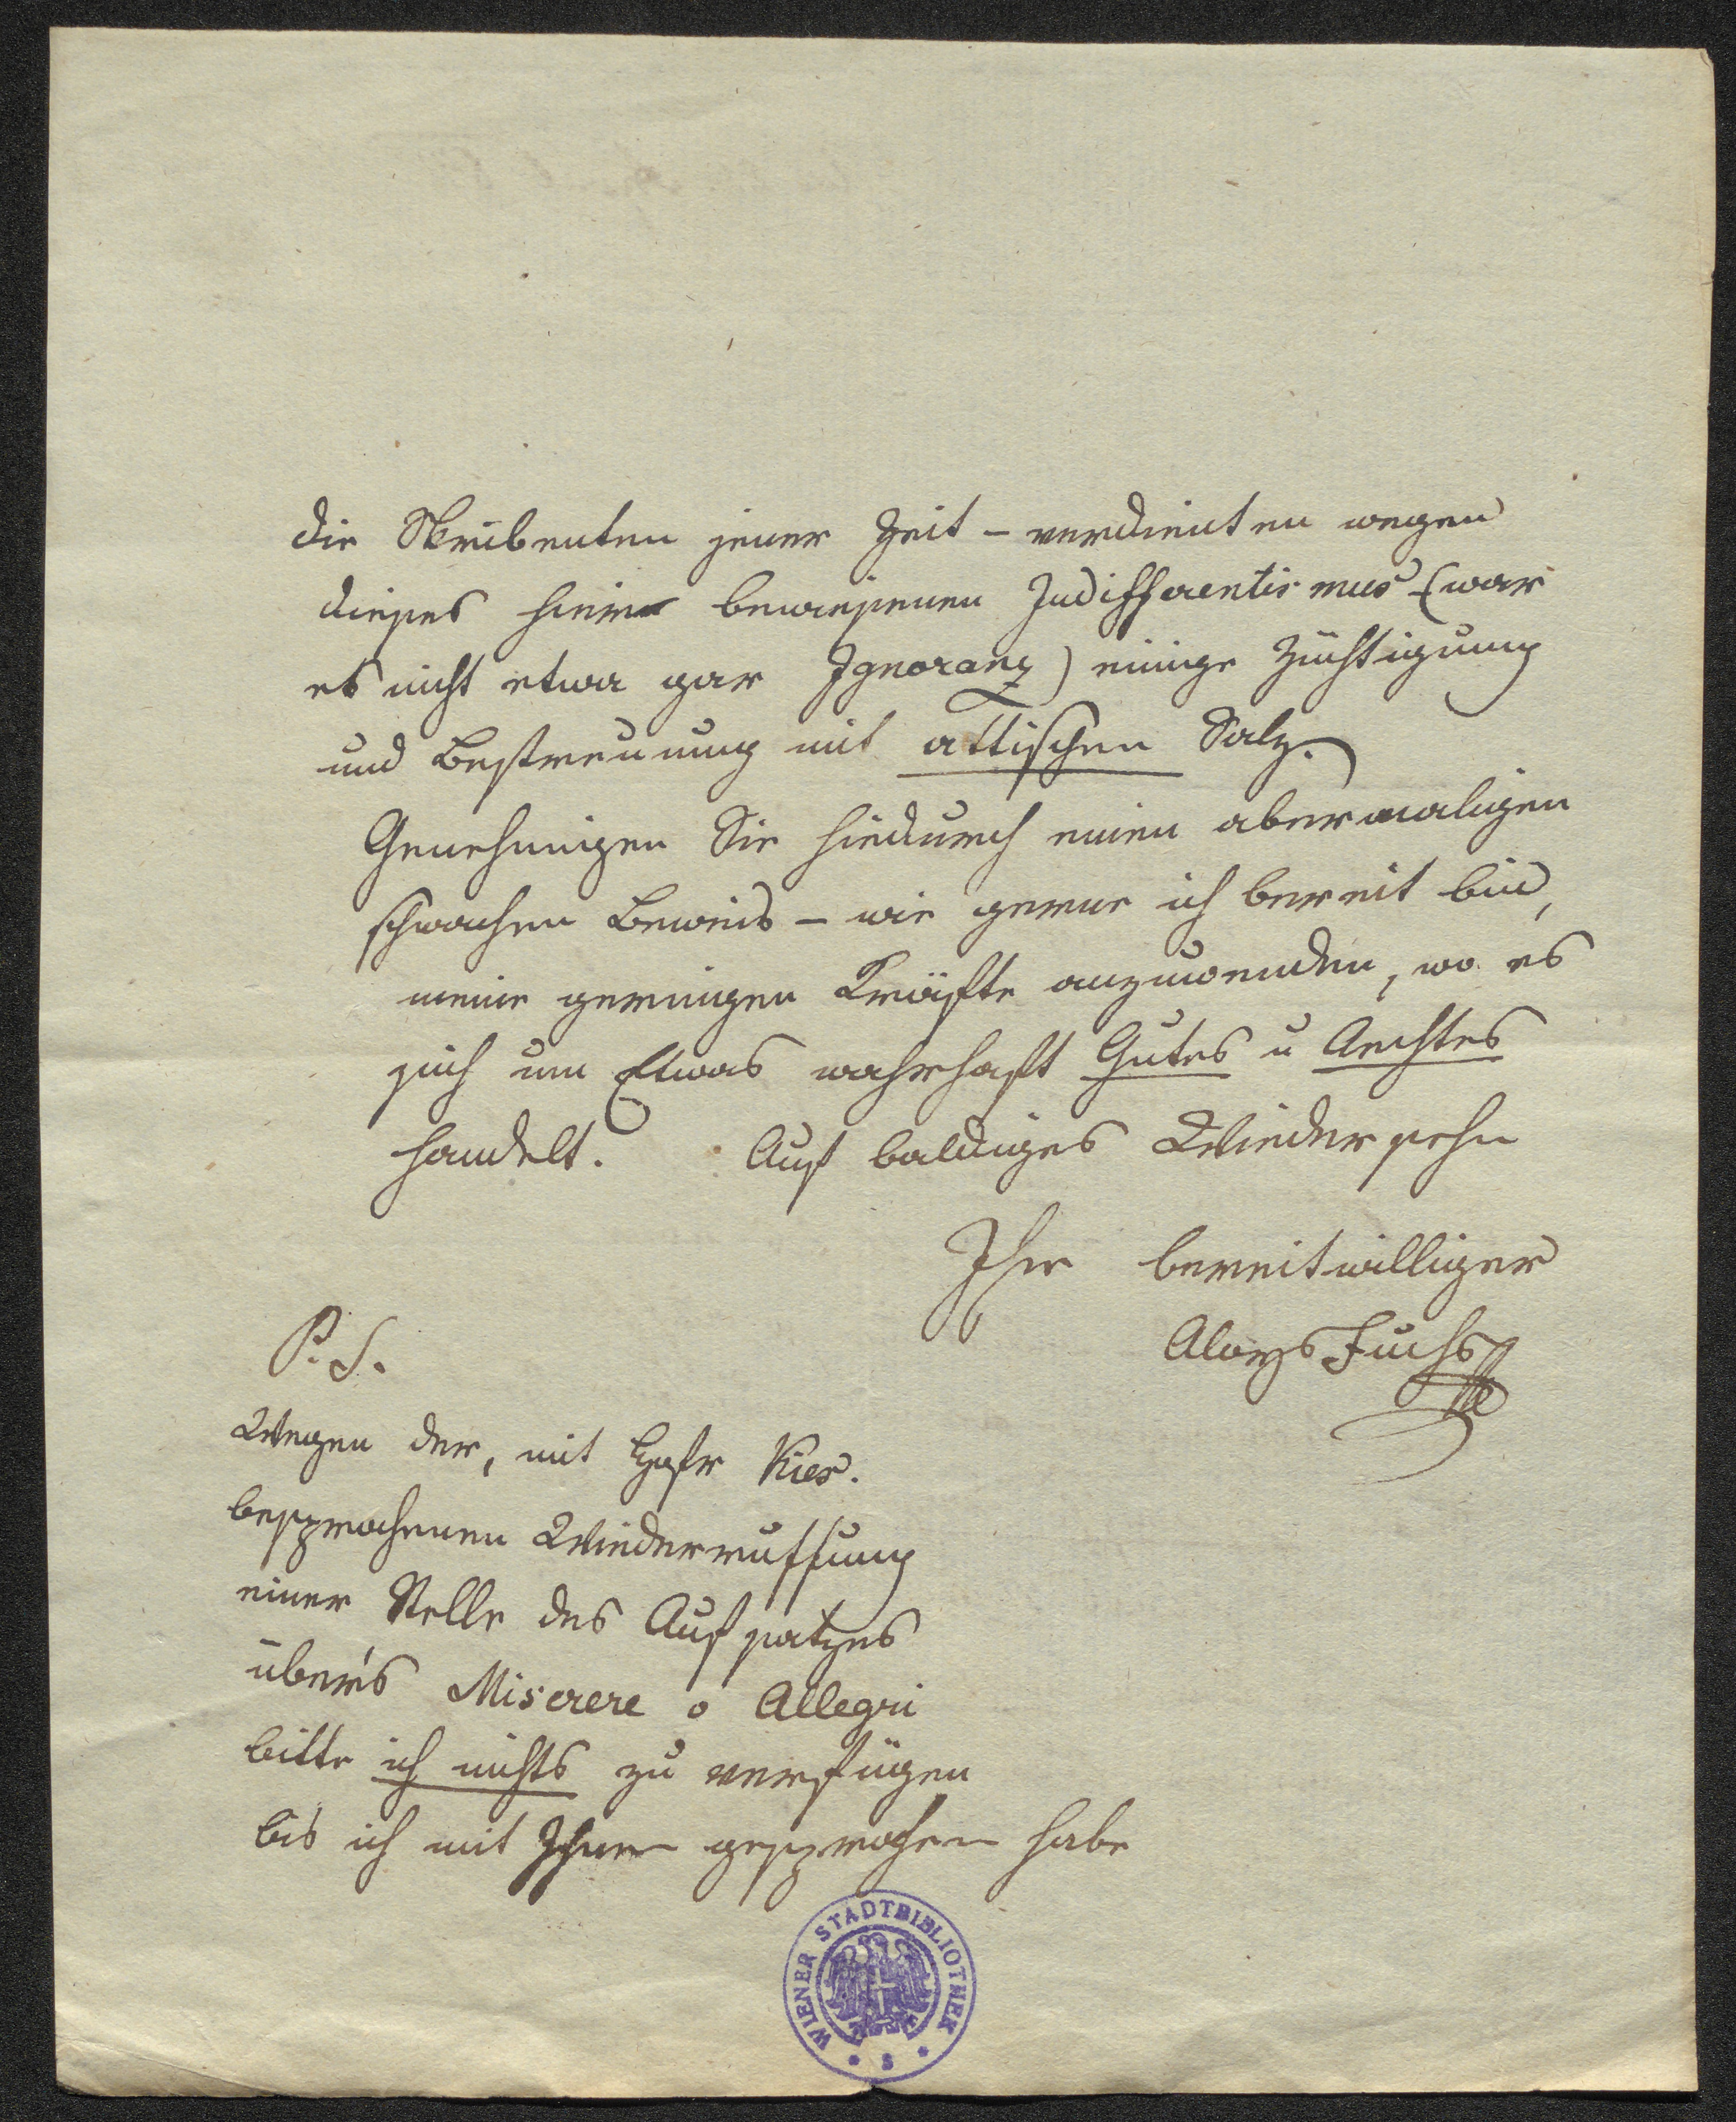 die Skribenten jener Zeit – verdienten wegen
dieses hierin bewiesenen Indifferentismus – (war
es nicht etwa gar Ignoranz) einige Züchtigung
und Bestreuung mit attischen Salz.
Genehmigen Sie hiedurch einen abermaligen
schwachen Beweis – wie gerne ich bereit bin,
meine geringen Kräfte anzuwenden, wo es
sich um Etwas wahrhaft Gutes u Aechtes
handelt. Auf baldiges Wiedersehn
Ihr bereitwilliger
Aloys Fuchs
P. S.
Wegen der, mit Hofr Kies.
besprochenen Wiederruffung
einer Stelle des Aufsatzes
über's Miserere v Allegri
bitte ich nichts zu verfügen
bis ich mit Ihnen gesprochen habe
WIENER STADTBIBLIOTHEK
* S *